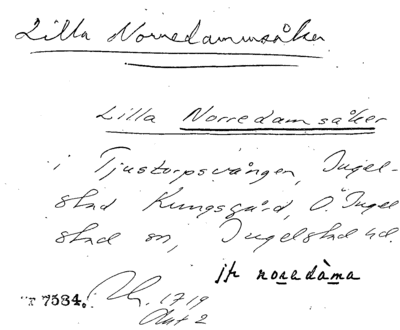 Lilla Norredammsåker
Lilla Norredamsåker
i Tjustorpsvången, Ingel-
stad Kungsgård, Ö. Ingel
stad sn, Ingelstad hd.
jfr noredàma
7584. 1719
Akt 2